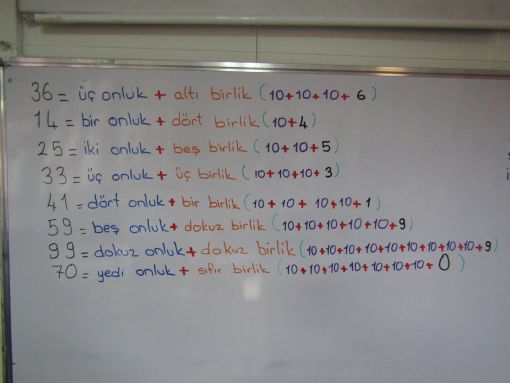 36 = üç onluk + altı birlik (10+10+10+ 6 )
14 = bir onluk + dört birlik (10+4)
25 = iki onluk + beş birlik (10+10+5)
33 = üç onluk + üç birlik (10+10+10+3)
41 = dört onluk + bir birlik (10+10+10+10+1)
59 = beş onluk + dokuz birlik (10+10+10+10+10+9)
99 = dokuz onluk + dokuz birlik (10+10+10+10+10+10+10+10+10+9)
70 = yedi onluk + sıfır birlik (10+10+10+10+10+10+10+ 0 )